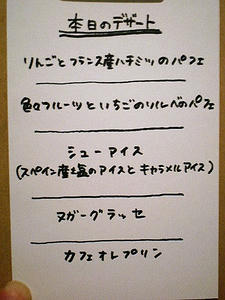 本日のデザート
りんごとフランス産ハチミツのパフェ
色々フルーツといちごのソルベのパフェ
シューアイス
(スペイン産塩のアイスとキャラメルアイス)
ヌガーグラッセ
カフェオレプリン